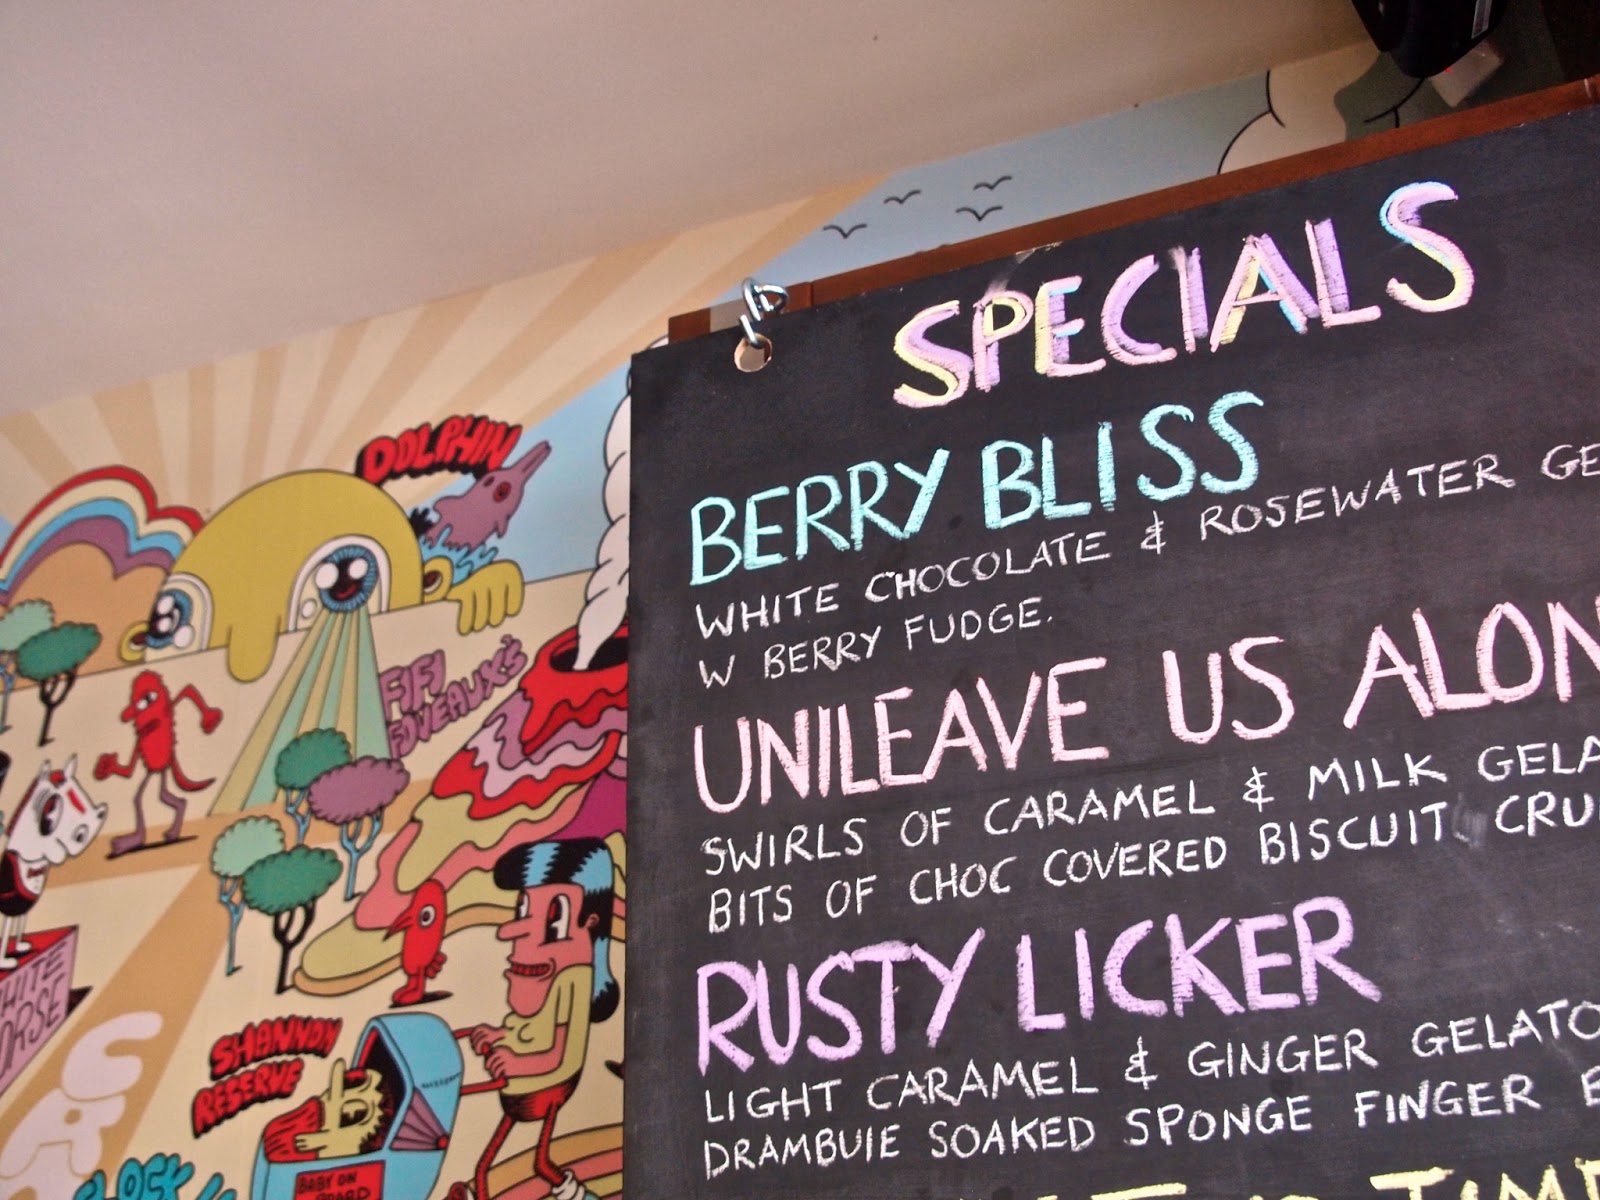 SPECIALS
BERRY BLISS
WHITE CHOCOLATE & ROSEWATER GE
W BERRY FUDGE.
UNILEAVE US ALON
SWIRLS OF CARAMEL & MILK GELA
BITS OF CHOC COVERED BISCUIT CRU
RUSTY LICKER
LIGHT CARAMEL & GINGER GELATO
DRAMBUIE SOAKED SPONGE FINGER
DOLPHIN
FIFI
FOVEAUX'S
SHANNON
RESERVE
BABY ON
BOARD